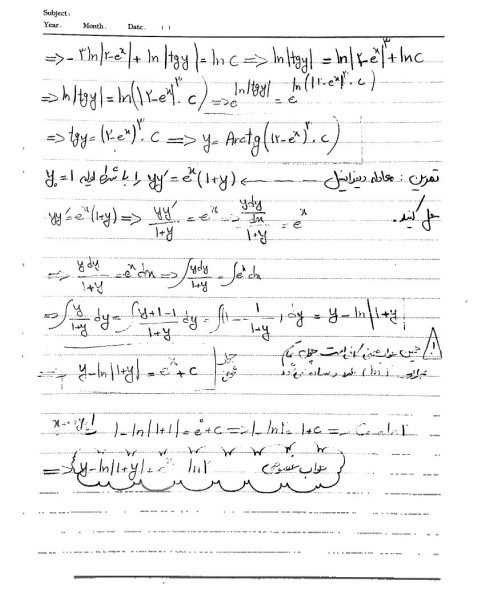 Subject:
Year. Month. Date. ( )
=> -۳ln|۲-eˣ| + ln|tgy| = ln C => ln|tgy| = ln|۲-eˣ|³ + lnC
=> ln|tgy| = ln(|۲-eˣ|³ . C) => e^(ln|tgy|) = e^(ln(|۲-eˣ|³ . C)
=> tgy = (۲-eˣ)³ . C => y = Arctg((۲-eˣ)³ . C)
تمرین : معادله دیفرانسیل ← yy' = eˣ(1+y) را با شرط اولیه y₀ = 1
حل کنید.
yy' = eˣ(1+y) => yy'/(1+y) = eˣ => (ydy/dx)/(1+y) = eˣ
=> ydy/(1+y) = eˣdx => ∫ydy/(1+y) = ∫eˣdx
=> ∫y/(1+y) dy = ∫(y+1-1)/(1+y) dy = ∫(1 - 1/(1+y)) dy = y - ln|1+y|
=> y - ln|1+y| = eˣ + C
1 - ln|1+1| = e⁰ + C =>
=> y - ln|1+y| = eˣ جواب خصوصی